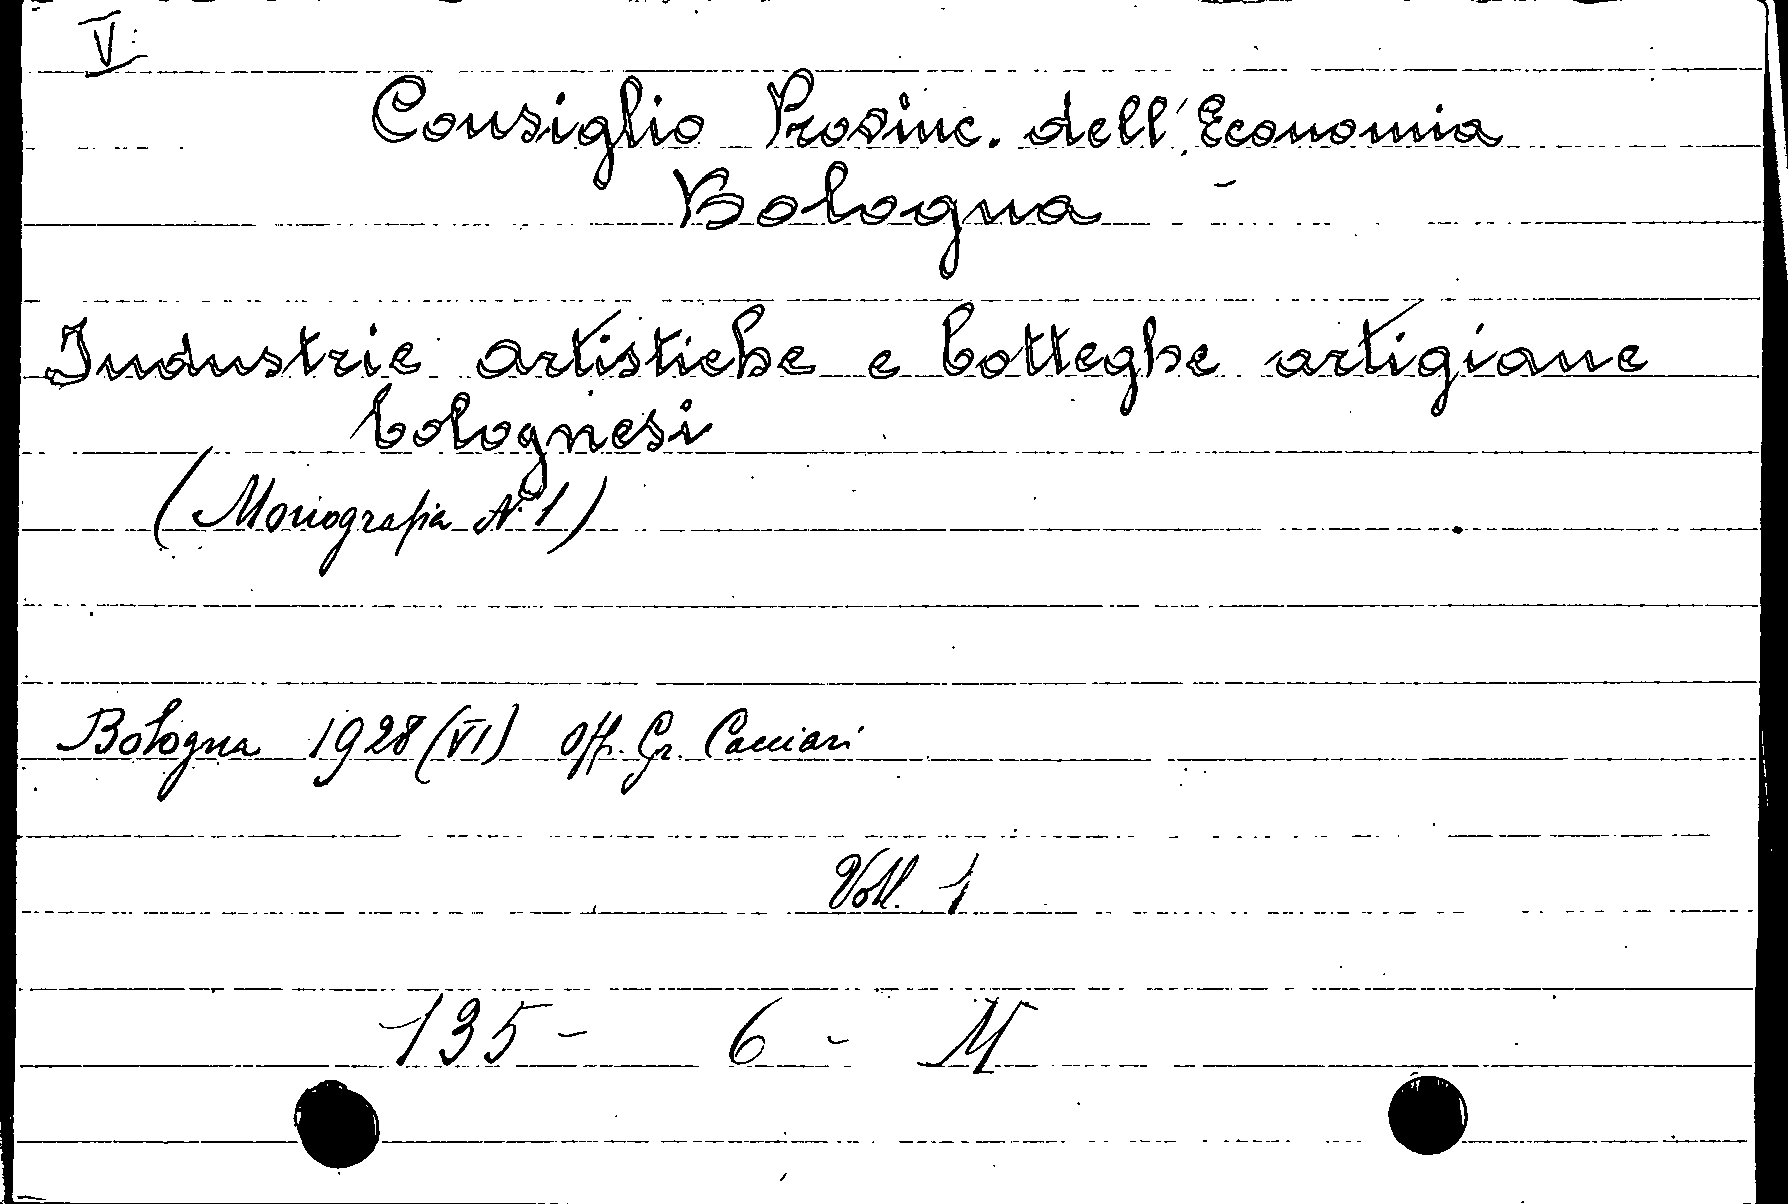 V:
Consiglio Provinc. dell'Economia
Bologna -
Industrie artistiche e botteghe artigiane
bolognesi
(Monografia N. 1)
Bologna 1928 (VI) Off. Gr. Cacciari
Voll. 1
135 - 6 - M